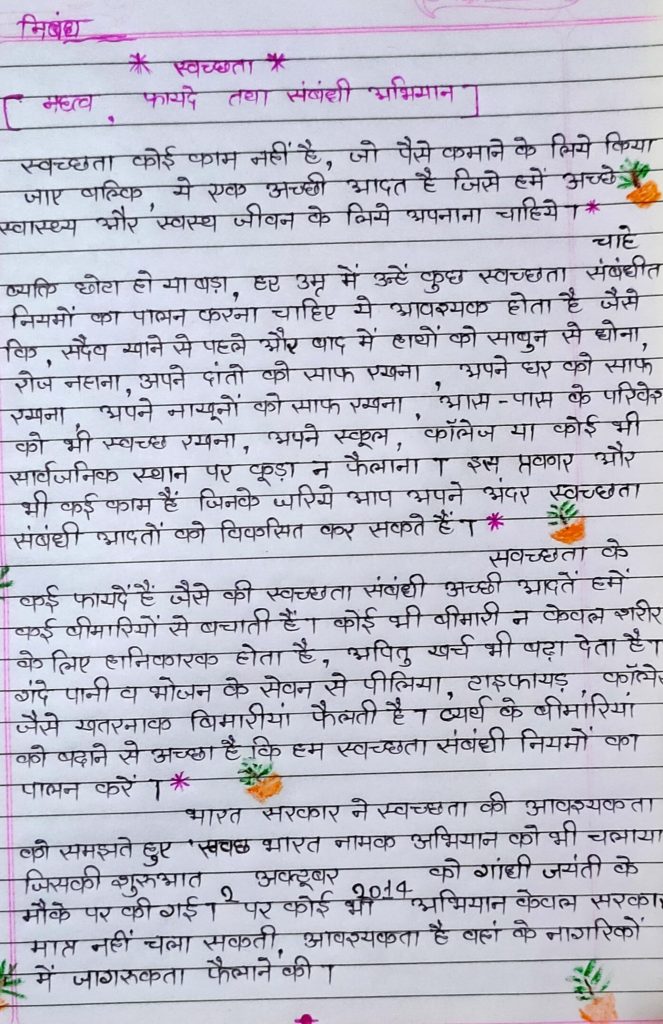 निबंध
* स्वच्छता *
[ महत्व, फायदे तथा संबंधी अभियान ]
स्वच्छता कोई काम नहीं है, जो पैसे कमाने के लिये किया
जाए बल्कि, ये एक अच्छी आदत है जिसे हमें अच्छे
स्वास्थ्य और स्वस्थ जीवन के लिये अपनाना चाहिये । *
चाहे
व्यक्ति छोटा हो या बड़ा, हर उम्र में उन्हें कुछ स्वच्छता संबंधीत
नियमों का पालन करना चाहिए ये आवश्यक होता है जैसे
कि, सदैव खाने से पहले और बाद में हाथों को साबुन से धोना,
रोज नहाना, अपने दांतो को साफ रखना, अपने घर को साफ
रखना, अपने नाखूनों को साफ रखना, आस-पास के परिवेश
को भी स्वच्छ रखना, अपने स्कूल, कॉलेज या कोई भी
सार्वजनिक स्थान पर कूड़ा न फैलाना । इस प्रकार और
भी कई काम हैं जिनके जरिये आप अपने अंदर स्वच्छता
संबंधी आदतों को विकसित कर सकते हैं । *
सवच्छता के
कई फायदें हैं जैसे की स्वच्छता संबंधी अच्छी आदतें हमें
कई बीमारियों से बचाती हैं । कोई भी बीमारी न केवल शरीर
के लिए हानिकारक होता है, अपितु खर्च भी बढ़ा देता है ।
गंदे पानी व भोजन के सेवन से पीलिया, टाइफायड, कॉलेर
जैसे खतरनाक बिमारीयां फैलती है । व्यर्थ के बीमारियां
को बढ़ाने से अच्छा है कि हम स्वच्छता संबंधी नियमों का
पालन करें । *
भारत सरकार ने स्वच्छता की आवश्यकता
को समझते हुए 'स्वच्छ भारत नामक अभियान को भी चलाया
जिसकी शुरुआत 2 अक्टूबर 2014 को गांधी जयंती के
मौके पर की गई । पर कोई भी अभियान केवल सरका
मात्र नहीं चला सकती, आवश्यकता है वहां के नागरिकों
में जागरुकता फैलाने की ।